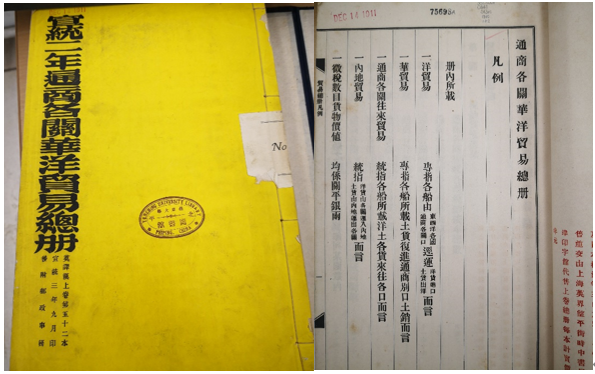 宣統二年通商各關華洋貿易總册
英譯漢上卷第五十二本
宣統三年九月印
No
YENCHING UNIVERSITY LIBRARY
DEC 14 1911
75695
通商各關華洋貿易總册
凡例
册內所載
一洋貿易
專指各船由
運
而言
一華貿易
專指各船所載土貨復進通商別口土銷而言
一通商各關往來貿易
統指各船所載洋土各貨來往各口而言
一內地貿易
統指
洋貨由各關運入內地
土貨由內地運出各關
而言
一徵稅數目貨物價値
均係關平銀兩
貿易總册凡例